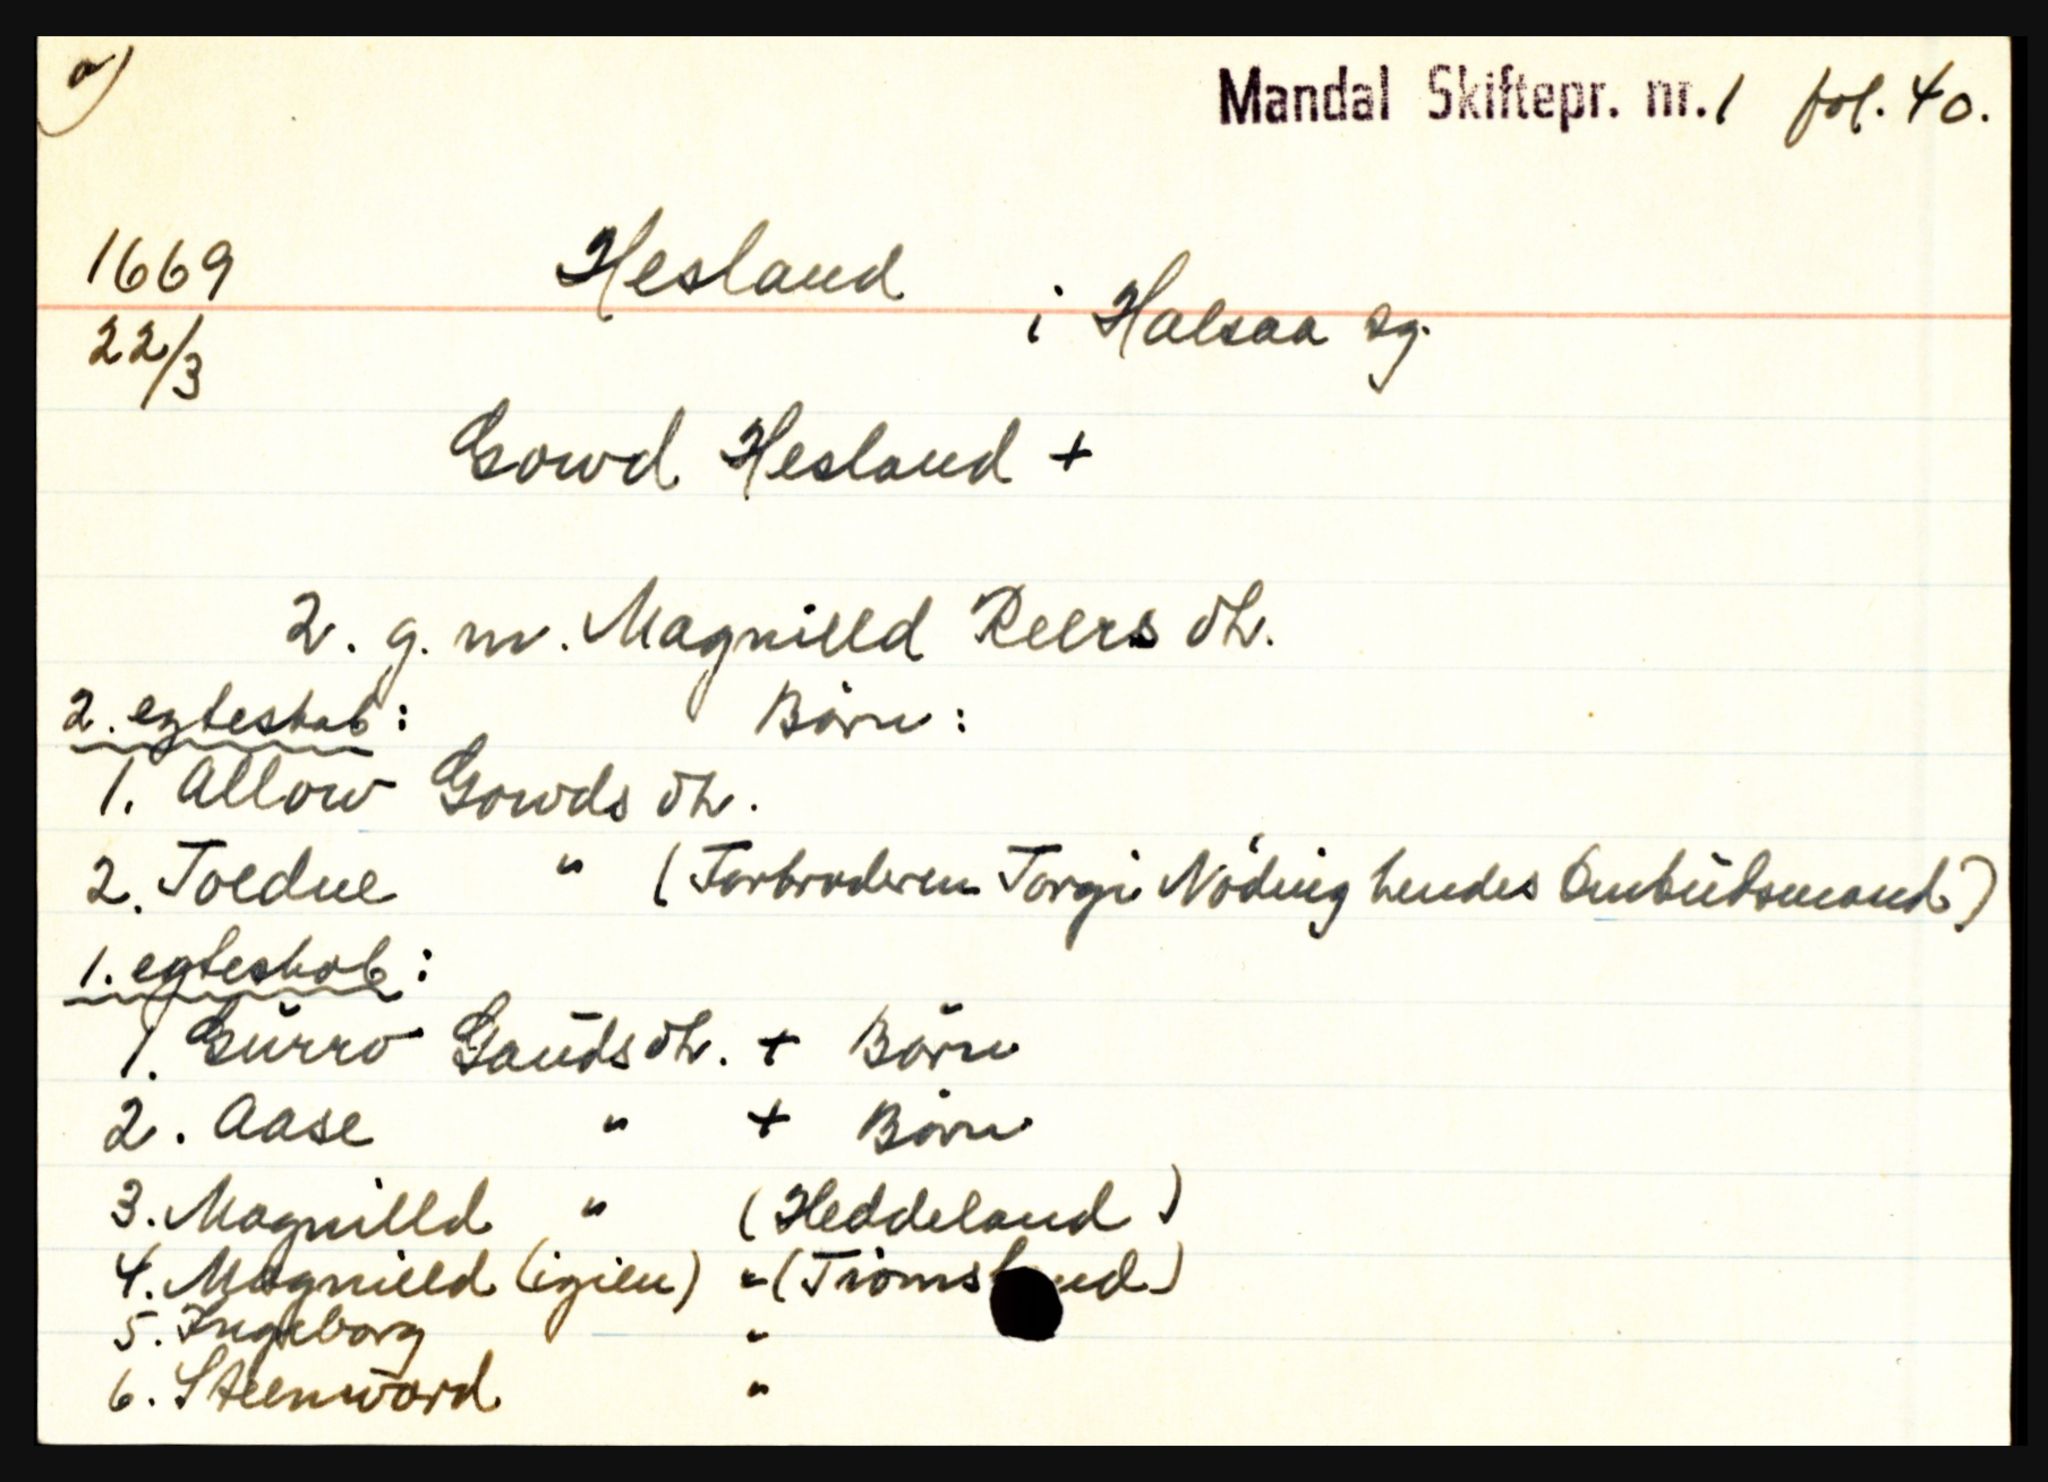 a)
Mandal Skiftepr. nr. 1 fol. 40.
1669 Hesland
22/3 i Halsaa sg.
Gowd Hesland +
2. g. m. Magnilld Peers dt.
2. egteskab: Börn:
1. Allow Gowds dt.
2. Toedne " (Farbroderen Torgi Nöding hendes Ombüdsmand)
1. egteskab:
1. Gurro Gaudsdt. + Börn
2. Aase " + Börn
3. Magnilld " (Heddeland)
4. Magnilld (igien) " (Tromsland)
5. Ingeborg "
6. Steenword "